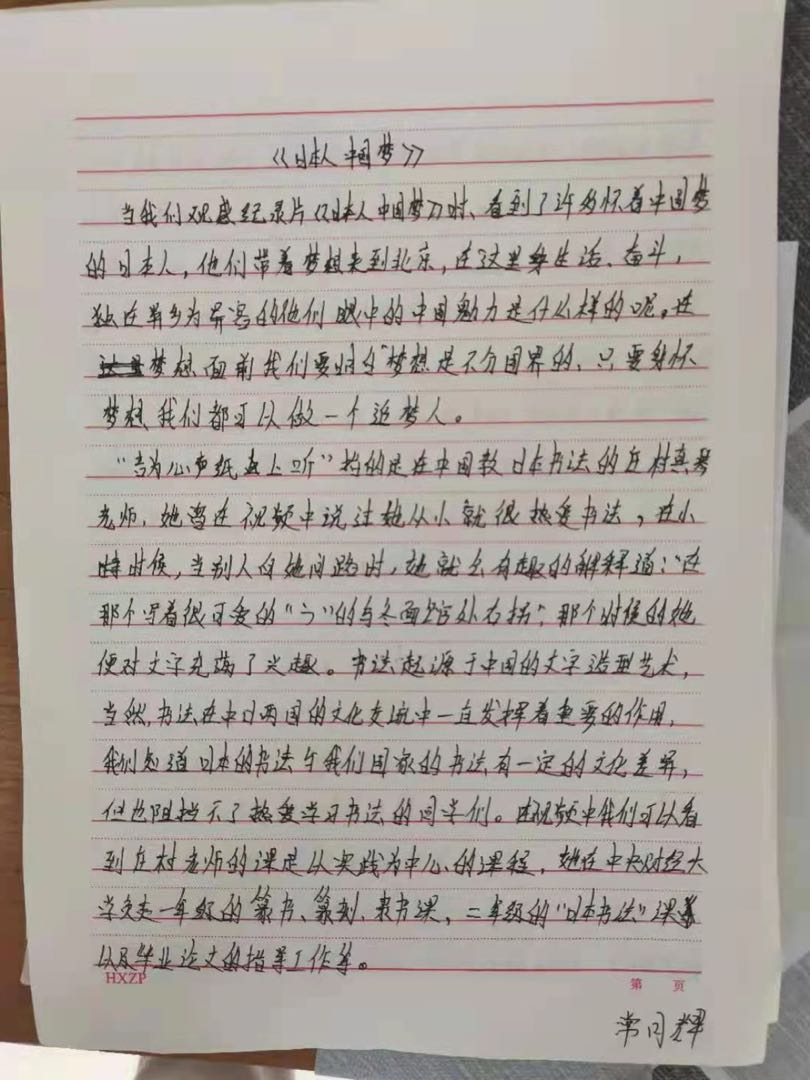 《日本人中国梦》
当我们观感纪录片《日本人中国梦》时、看到了许多怀着中国梦
的日本人，他们带着梦想来到北京，在这里生活、奋斗，
独在异乡为异客的他们眼中的中国魅力是什么样的呢。在
梦想面前我们要明白“梦想是不分国界的、只要身怀
梦想、我们都可以做一个追梦人。
“言为心声纸上听”指的是在中国教日本书法的庄村真琴
老师，她曾在视频中说过她从小就很热爱书法，在小
时候，当别人向她问路时，她就会有趣的解释道：“在
那个写着很可爱的“う”的乌冬面馆处右拐”，那个时候的她
便对文字充满了兴趣。书法起源于中国的文字造型艺术，
当然，书法在中日两国的文化交流中一直发挥着重要的作用，
我们知道日本的书法与我们国家的书法有一定的文化差异，
但也阻挡不了热爱学习书法的同学们。在视频中我们可以看
到庄村老师的课是以实践为中心的课程，她在中央财经大
学负责一年级的篆书、篆刻、隶书课，二年级的“日本书法”课
以及毕业论文的指导工作等。
HXZP
第 页
常月辉